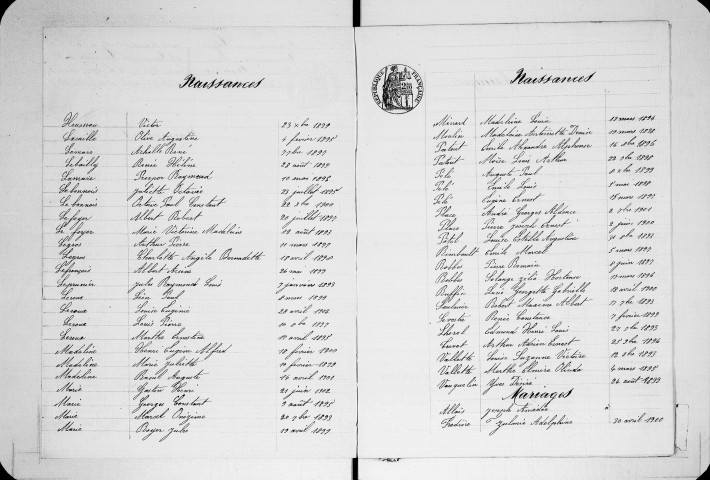 Naissances
Victor 23 xbre 1899
Olive Augustine 4 février 1895
Lemare
Lebailly Renée Hélène 28 août 1899
Prosper Raymond 10 mars 1896
Lebannois Juliette Octavie 23 juillet 1895
Lebannois Octave Paul Constant 22 1900
Le foyer Albert Robert 20 juillet 1897
Le foyer Marie Victorine Madeleine 12 août 1893
Legros Arthur Pierre 10 mars 1897
Legros Charlotte Angèle Bernadette 18 avril 1890
Lefrançois Albert 26 mai 1899
Leprunier Jules Raymond Louis 7 janvier 1893
Leroux Léon Paul 8 mars 1899
Leroux Louise Eugénie 28 avril 1902
Leroux Louis Pierre 10 8bre 1897
Leroux Marthe Ernestine 19 avril 1895
Madeline Eugène Alfred 18 février 1900
Madeline Marie Juliette 14 février 1898
Madeline Raoul Auguste 16 avril 1901
Marie Gaston Henri 21 juin 1902
Marie Georges Constant 9 août 1895
Marie Marcel Onézime 20 7bre 1893
Marie Royer Jules 19 avril 1899
REPUBLIQUE FRANÇAISE
Naissances
Ménard Madeleine Louise 12 mars 1896
Moulin Madeleine Antoinette Denise
Patout Emile Alexandre Alphonse 16 8bre 1896
Patout Moïse Léon Arthur
Pele Auguste Paul
Pelé Emile Louis
Pelé Eugène Ernest 15 mars 1893
Place André Georges 2 8bre 1901
Place Pierre Joseph Ernest 2 juin 1900
Louise Estelle Augustine
Rimbault Emile Marcel 5 mars 1897
Robbes Pierre Romain 8 juin 1897
Robbes Solange Zélia Hortense 10 mars 1896
Ruffin Marie Georgette Gabrielle 18 avril 1900
Saulnier Robert Maxime Albert 17 7bre 1893
Renée Constance 7 février 1899
Edmond Henri Louis 27 1893
Arthur Adrien Ernest 25 9bre 1896
Vallette Louise Suzanne Victoire 12 8bre 1893
Vallette Marthe Elmire Olinda 4 mars 1895
Vauquelin Yves Désiré 26 août 1893
Mariages
Allais Joseph Amédée
Zulmée Adelphine 30 avril 1900